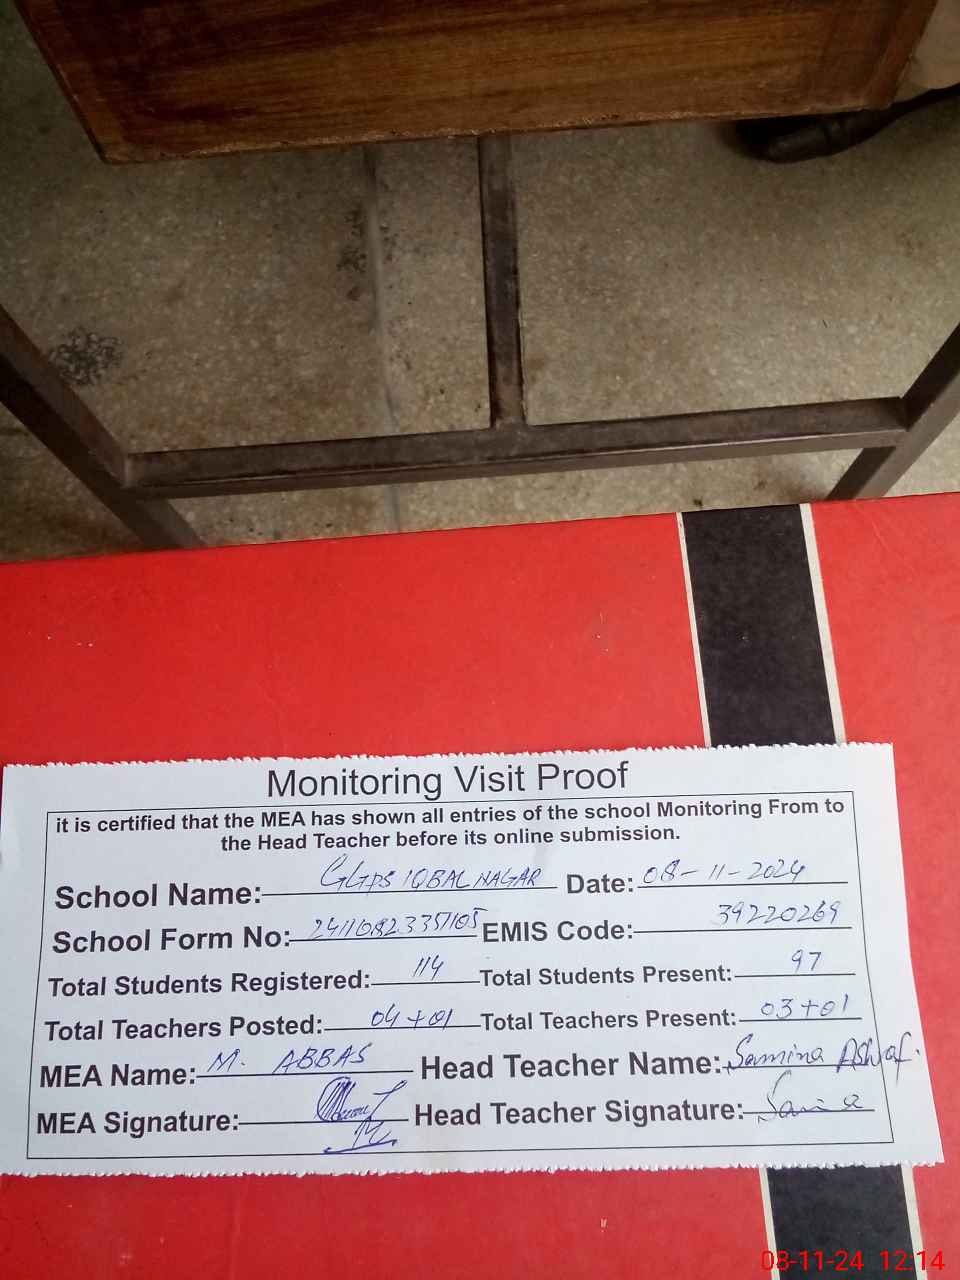 Monitoring Visit Proof
it is certified that the MEA has shown all entries of the school Monitoring From to
the Head Teacher before its online submission.
School Name: GGPS IQBAL NAGAR Date: 08-11-2024
School Form No: 24110823357105 EMIS Code: 39220269
Total Students Registered: 114 Total Students Present: 97
Total Teachers Posted: 04+01 Total Teachers Present: 03+01
MEA Name: M. ABBAS Head Teacher Name: Samina Ashraf.
MEA Signature: Head Teacher Signature:
08-11-24 12:14